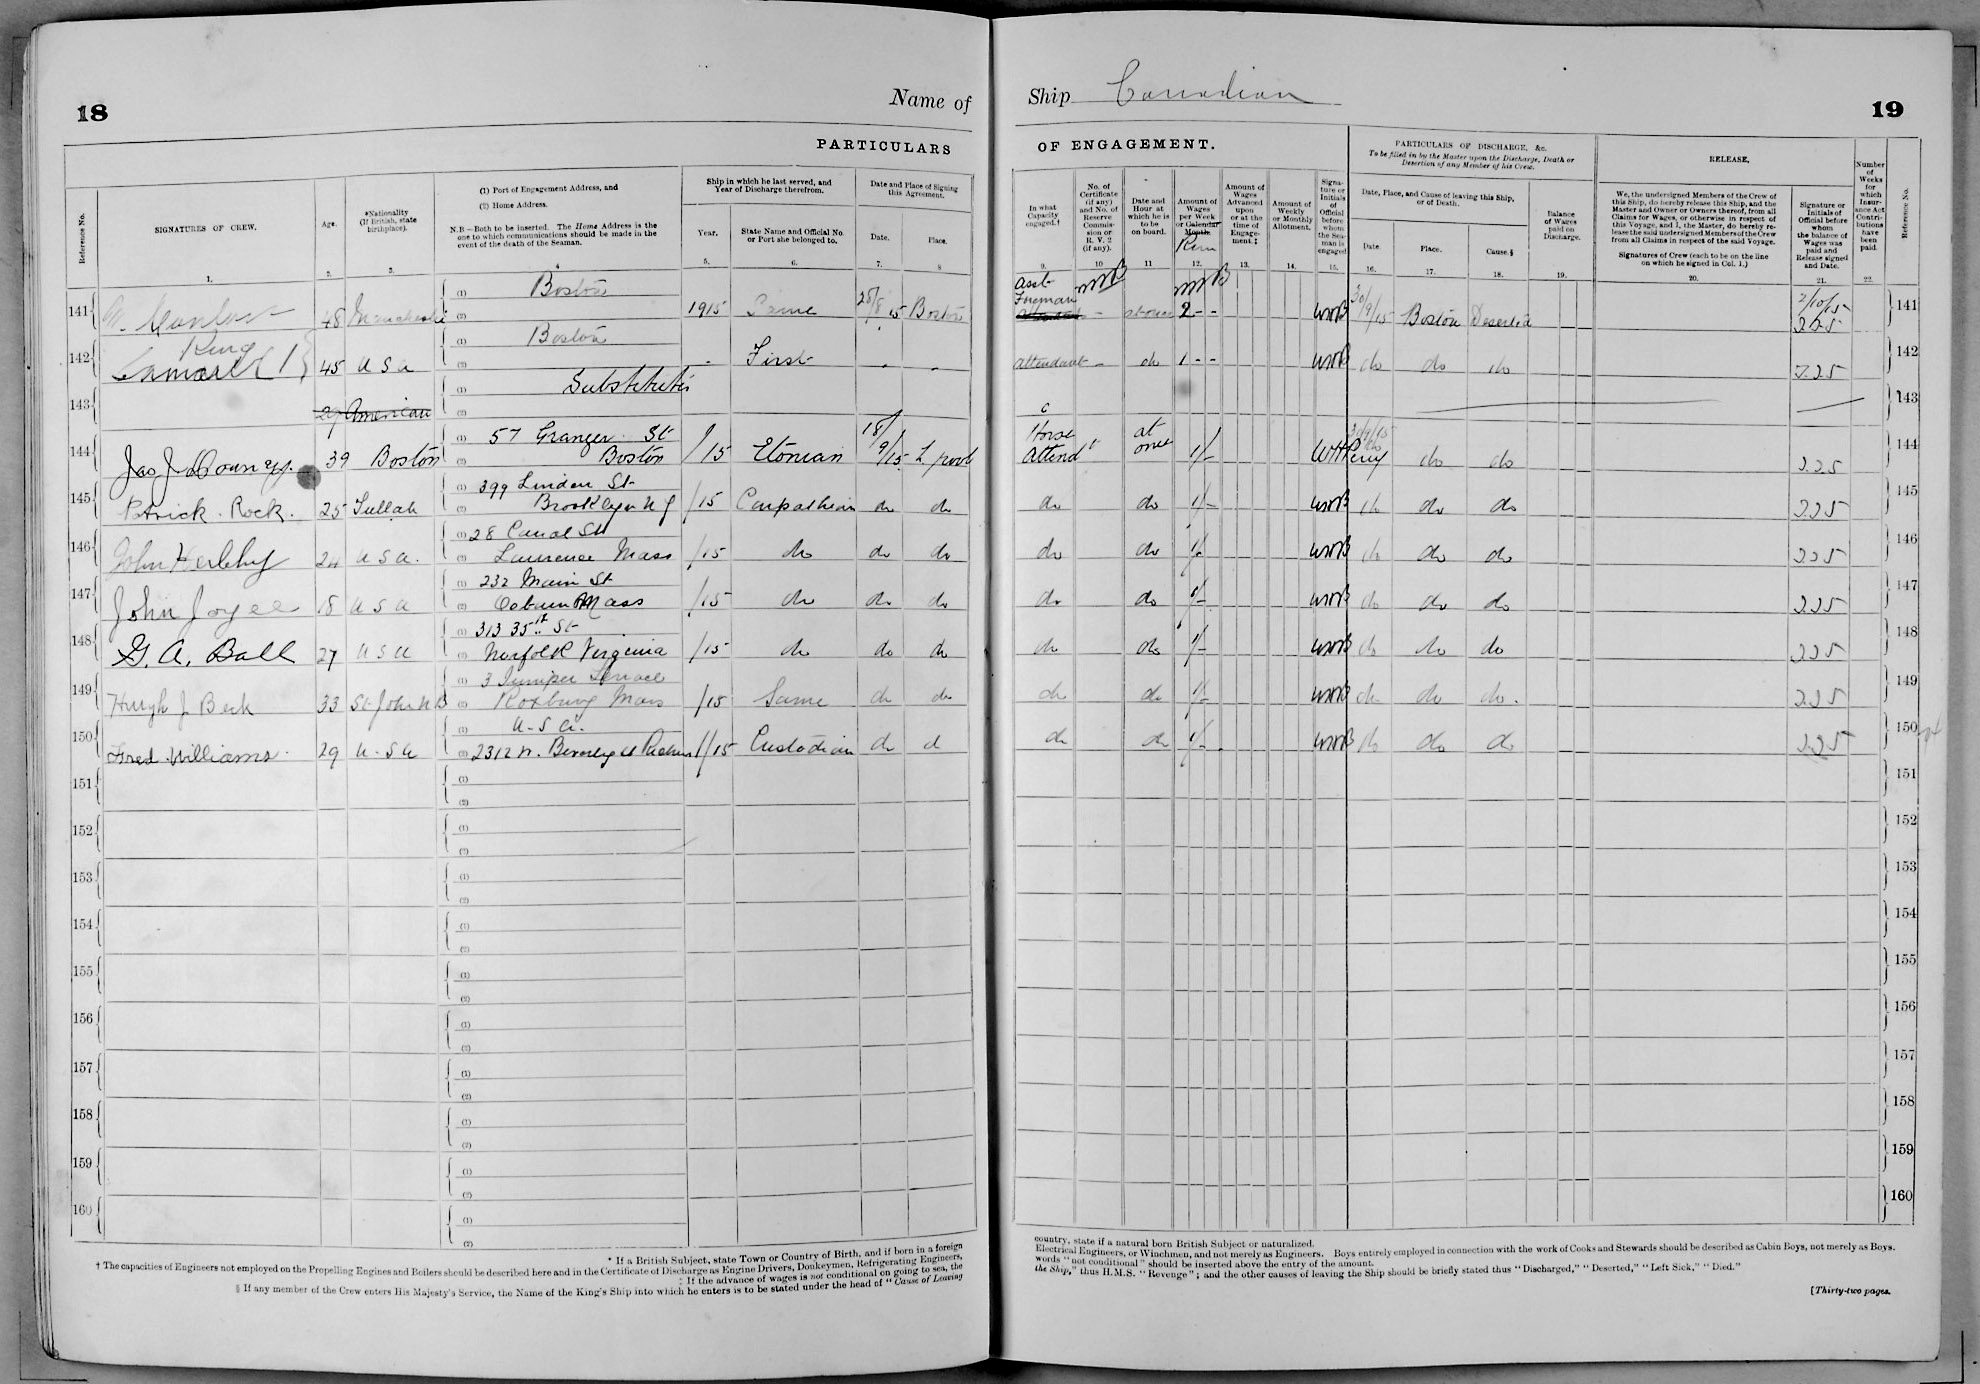 18
Name of
Ship Canadian
19
PARTICULARS
OF ENGAGEMENT.
PARTICULARS OF DISCHARGE, &c.
To be filled in by the Master upon the Discharge, Death or
Desertion of any Member of his Crew.
RELEASE.
Reference No.
SIGNATURES OF CREW.
1.
Age.
2.
*Nationality
(If British, state
birthplace).
3.
(1) Port of Engagement Address, and
(2) Home Address.
N.B—Both to be inserted. The Home Address is the
one to which communications should be made in the
event of the death of the Seaman.
4
Ship in which he last served, and
Year of Discharge therefrom.
Year.
5.
State Name and Official No.
or Port she belonged to.
6.
Date and Place of Signing
this Agreement.
Date.
7.
Place.
8
In what
Capacity
engaged.†
9.
No. of
Certificate
(if any)
and No. of
Reserve
Commis-
sion or
R. V. 2
(if any).
10
Date and
Hour at
which he is
to be
on board.
11
Amount of
Wages
per Week
or Calendar
Month.
Run
12.
Amount of
Wages
Advanced
upon
or at the
time of
Engage-
ment.‡
13.
Amount of
Weekly
or Monthly
Allotment.
14.
Signa-
ture or
Initials
of
Official
before
whom
the Sea-
man is
engaged
15.
Date, Place, and Cause of leaving this Ship,
or of Death.
Date.
16.
Place.
17.
Cause.§
18.
Balance
of Wages
paid on
Discharge.
19.
We, the undersigned Members of the Crew of
this Ship, do hereby release this Ship, and the
Master and Owner or Owners thereof, from all
Claims for Wages, or otherwise in respect of
this Voyage, and I, the Master, do hereby re-
lease the said undersigned Members of the Crew
from all Claims in respect of the said Voyage.
Signatures of Crew (each to be on the line
on which he signed in Col. 1.)
20.
Signature or
Initials of
Official before
whom
the balance of
Wages was
paid and
Release signed
and Date.
21.
Number
of
Weeks
for
which
Insur-
ance Act
Contri-
butions
have
been
paid.
22.
Reference No.
141 48 Manchester (1) Boston (2) 1915 Same 28/8/15 Boston Asst Foreman at once 2 - - WMB 30/9/15 Boston Deserted 2/10/15 141
142 King 45 U S A (1) Boston (2) First Attendant do 1 - - WMB do do do 142
143 29 American (1) Substitutes (2) 143
144 Jas J Downey. 39 Boston (1) 57 Granger St (2) Boston /15 Etonian 18/9/15 L'pool Horse Attendt at once 1/- do do 144
145 Patrick Rock. 25 Tullah (1) 399 Linden St (2) Brooklyn N Y /15 Carpathian do do do do 1/- WMB do do do 145
146 John Herlihy 24 U S A. (1) 28 Canal St (2) Lawrence Mass /15 do do do do do 1/- WMB do do do 146
147 John Joyce 18 U S A (1) 232 Main St (2) Mass /15 do do do do do 1/- WMB do do do 147
148 G. A. Ball 27 U S A (1) 313 35th St (2) Norfolk Virginia /15 do do do do do 1/- WMB do do do 148
149 Hugh J Beck 33 St John N B (1) 3 Juniper Terrace (2) Roxbury Mass /15 Same do do do do 1/- WMB do do do. 149
150 Fred Williams. 29 U.S A (1) U.S A. (2) 2312 N. /15 Custodian do d do do 1/- WMB do do do 150
151 (1) (2) 151
152 (1) (2) 152
153 (1) (2) 153
154 (1) (2) 154
155 (1) (2) 155
156 (1) (2) 156
157 (1) (2) 157
158 (1) (2) 158
159 (1) (2) 159
160 (1) (2) 160
* If a British Subject, state Town or Country of Birth, and if born in a foreign country, state if a natural born British Subject or naturalized.
† The capacities of Engineers not employed on the Propelling Engines and Boilers should be described here and in the Certificate of Discharge as Engine Drivers, Donkeymen, Refrigerating Engineers, Electrical Engineers, or Winchmen, and not merely as Engineers. Boys entirely employed in connection with the work of Cooks and Stewards should be described as Cabin Boys, not merely as Boys.
‡ If the advance of wages is not conditional on going to sea, the words "not conditional" should be inserted above the entry of the amount.
§ If any member of the Crew enters His Majesty's Service, the Name of the King's Ship into which he enters is to be stated under the head of "Cause of Leaving the Ship," thus H.M.S. "Revenge"; and the other causes of leaving the Ship should be briefly stated thus "Discharged," "Deserted," "Left Sick," "Died."
[Thirty-two pages.